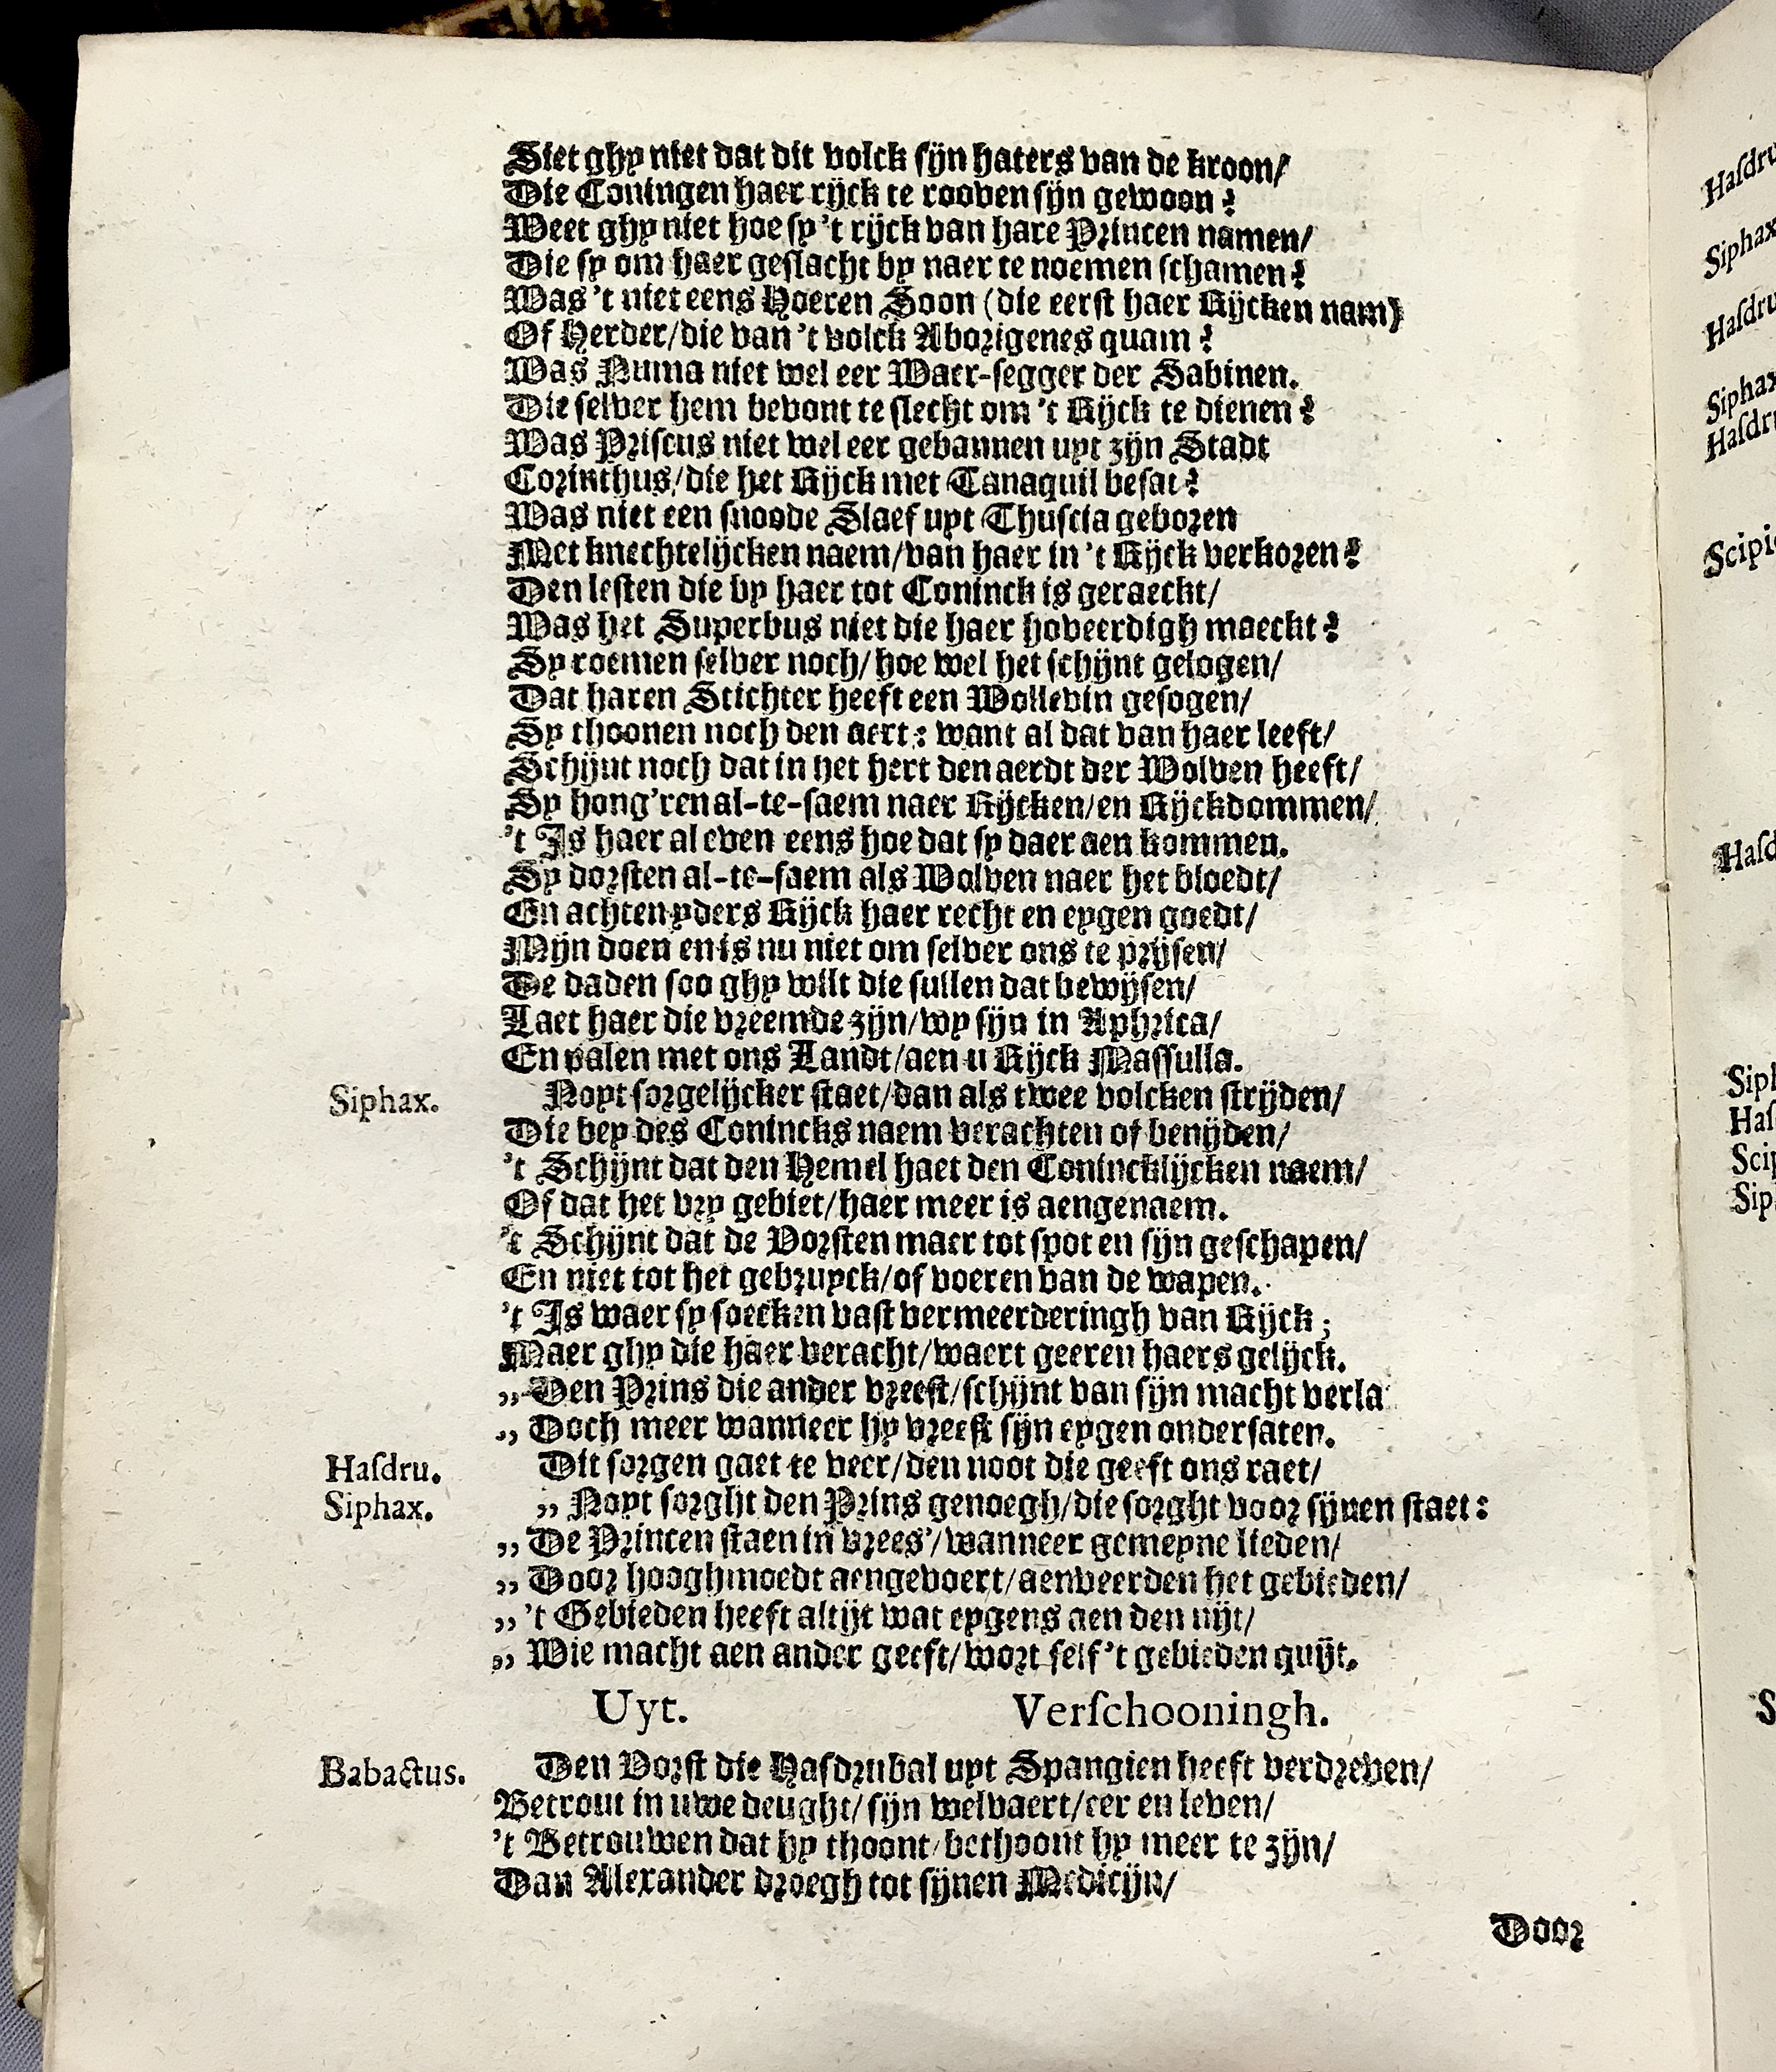 Siet ghy niet dat dit volck sijn haters van de kroon/
Die Coningen haer rijck te rooven sijn gewoon?
Weet ghy niet hoe sy 't rijck van hare Princen namen/
Die sy om haer geslacht by naer te noemen schamen?
Was 't niet eens Hoeren Soon (die eerst haer Rijcken nam)
Of Herder/die van 't volck Aborigenes quam?
Was Numa niet wel eer Waer-segger der Sabinen.
Die selver hem bevont te slecht om 't Rijck te dienen?
Was Priscus niet wel eer gebannen uyt zijn Stadt
Corinthus/die het Rijck met Tanaquil besat?
Was niet een snoode Slaef uyt Thuscia geboren
Met knechtelijcken naem/van haer in 't Rijck verkoren?
Den lesten die by haer tot Coninck is geraeckt/
Was het Superbus niet die haer hoveerdigh maeckt?
Sy roemen selver noch/hoe wel het schijnt gelogen/
Dat haren Stichter heeft een Wollevin gesogen/
Sy thoonen noch den aert: want al dat van haer leeft/
Schijnt noch dat in het hert den aerdt der Wolven heeft/
Sy hong'ren al-te-saem naer Rijcken/en Rijckdommen/
't Is haer al even eens hoe dat sy daer aen kommen.
Sy dorsten al-te-saem als Wolven naer het bloedt/
En achten yders Rijck haer recht en eygen goedt/
Mijn doen en is nu niet om selver ons te prijsen/
De daden soo ghy wilt die sullen dat bewijsen/
Laet haer die vreemde zijn/wy sijn in Aphrica/
En palen met ons Landt/aen u Rijck Massulla.
Siphax. Noyt sorgelijcker staet/dan als twee volcken strijden/
Die bey des Conincks naem verachten of benijden/
't Schijnt dat den Hemel haet den Conincklijcken naem/
Of dat het vry gebiet/haer meer is aengenaem.
't Schijnt dat de Vorsten maer tot spot en sijn geschapen/
En niet tot het gebruyck/of voeren van de wapen.
't Is waer sy soecken vast vermeerderingh van Rijck;
Maer ghy die haer veracht/waert geeren haers gelijck.
,, Den Prins die ander vreest/schijnt van sijn macht verla
,, Doch meer wanneer hy vreest sijn eygen ondersaten.
Hasdru. Dit sorgen gaet te veer/den noot die geeft ons raet/
Siphax. ,, Noyt sorght den Prins genoegh/die sorght voor sijnen staet:
,, De Princen staen in vrees'/wanneer gemeyne lieden/
,, Door hooghmoedt aengevoert/aenveerden het gebieden/
,, 't Gebieden heeft altijt wat eygens aen den nijt/
,, Wie macht aen ander geeft/wort self 't gebieden quijt.
Uyt. Verschooningh.
Babactus. Den Vorst die Hasdrubal uyt Spangien heeft verdreven/
Betrout in uwe deught/sijn welvaert/eer en leven/
't Betrouwen dat hy thoont/bethoont hy meer te zijn/
Dan Alexander droegh tot sijnen Medicijn/
Door
Hasdru
Siphax
Hasdru
Siphax
Hasdru
Scipi
Hasd
Siph
Has
Scip
Sip
S